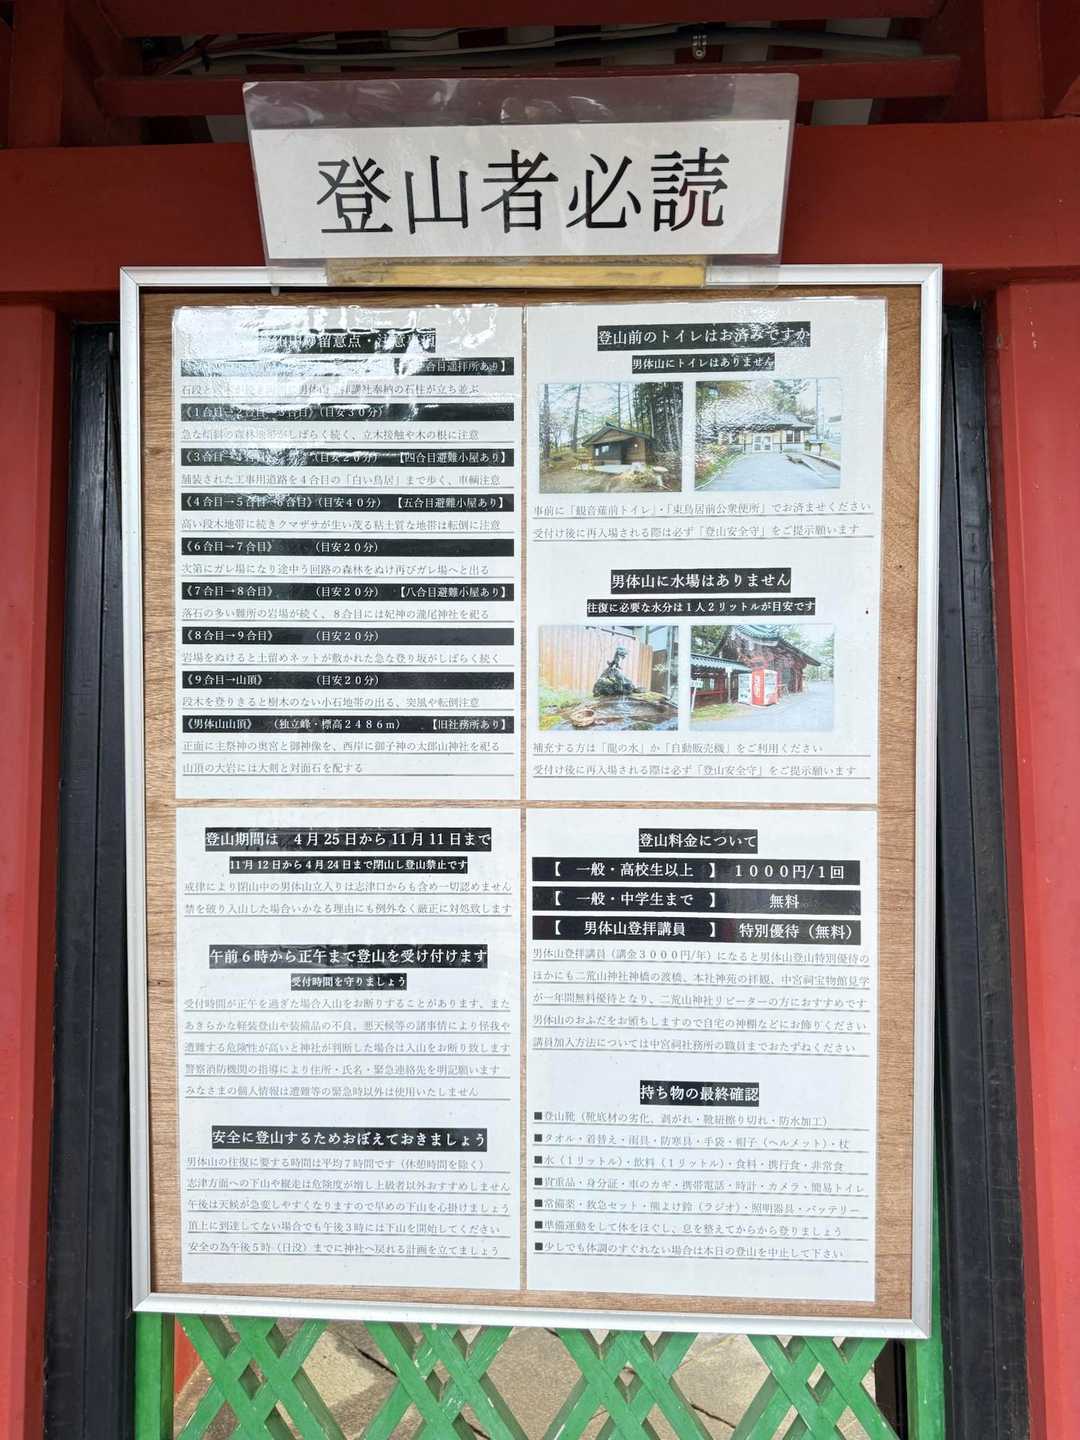 登山者必読
留意点・注意事項
合目遥拝所あり】
石段と
男体山
拝講社奉納の石柱が立ち並ぶ
《1合目→2合目→3合目》(目安30分)
急な傾斜の森林地帯がしばらく続く、立木接触や木の根に注意
《3合目→4合目》(目安20分) 【四合目避難小屋あり】
舗装された工事用道路を4合目の「白い鳥居」まで歩く、車輌注意
《4合目→5合目→6合目》(目安40分) 【五合目避難小屋あり】
高い段木地帯に続きクマザサが生い茂る粘土質な地帯は転倒に注意
《6合目→7合目》 (目安20分)
次第にガレ場になり途中う回路の森林をぬけ再びガレ場へと出る
《7合目→8合目》 (目安20分) 【八合目避難小屋あり】
落石の多い難所の岩場が続く、8合目には妃神の瀧尾神社を祀る
《8合目→9合目》 (目安20分)
岩場をぬけると土留めネットが敷かれた急な登り坂がしばらく続く
《9合目→山頂》 (目安20分)
段木を登りきると樹木のない小石地帯の出る、突風や転倒注意
《男体山山頂》 (独立峰・標高2486m) 【旧社務所あり】
正面に主祭神の奥宮と御神像を、西岸に御子神の太郎山神社を祀る
山頂の大岩には大剣と対面石を配する
登山前のトイレはお済みですか
男体山にトイレはありません
事前に「観音薙前トイレ」・「東鳥居前公衆便所」でお済ませください
受付け後に再入場される際は必ず「登山安全守」をご提示願います
男体山に水場はありません
往復に必要な水分は1人2リットルが目安です
補充する方は「龍の水」か「自動販売機」をご利用ください
受付け後に再入場される際は必ず「登山安全守」をご提示願います
登山期間は 4月25日から11月11日まで
11月12日から4月24日まで閉山し登山禁止です
戒律により閉山中の男体山立入りは志津口からも含め一切認めません
禁を破り入山した場合いかなる理由にも例外なく厳正に対処致します
午前6時から正午まで登山を受け付けます
受付時間を守りましょう
受付時間が正午を過ぎた場合入山をお断りすることがあります、また
あきらかな軽装登山や装備品の不良、悪天候等の諸事情により怪我や
遭難する危険性が高いと神社が判断した場合は入山をお断り致します
警察消防機関の指導により住所・氏名・緊急連絡先を明記願います
みなさまの個人情報は遭難等の緊急時以外は使用いたしません
安全に登山するためおぼえておきましょう
男体山の往復に要する時間は平均7時間です(休憩時間を除く)
志津方面への下山や縦走は危険度が増し上級者以外おすすめしません
午後は天候が急変しやすくなりますので早めの下山を心掛けましょう
頂上に到達してない場合でも午後3時には下山を開始してください
安全の為午後5時(日没)までに神社へ戻れる計画を立てましょう
登山料金について
【 一般・高校生以上 】 1000円/1回
【 一般・中学生まで 】 無料
【 男体山登拝講員 】 特別優待(無料)
男体山登拝講員(講金3000円/年)になると男体山登山特別優待の
ほかにも二荒山神社神橋の渡橋、本社神苑の拝観、中宮祠宝物館見学
が一年間無料優待となり、二荒山神社リピーターの方におすすめです
男体山のおふだをお頒ちしますので自宅の神棚などにお飾りください
講員加入方法については中宮祠社務所の職員までおたずねください
持ち物の最終確認
■登山靴(靴底材の劣化、剥がれ・靴紐擦り切れ・防水加工)
■タオル・着替え・雨具・防寒具・手袋・帽子(ヘルメット)・杖
■水(1リットル)・飲料(1リットル)・食料・携行食・非常食
■貴重品・身分証・車のカギ・携帯電話・時計・カメラ・簡易トイレ
■常備薬・救急セット・熊よけ鈴(ラジオ)・照明器具・バッテリー
■準備運動をして体をほぐし、息を整えてからから登りましょう
■少しでも体調のすぐれない場合は本日の登山を中止して下さい